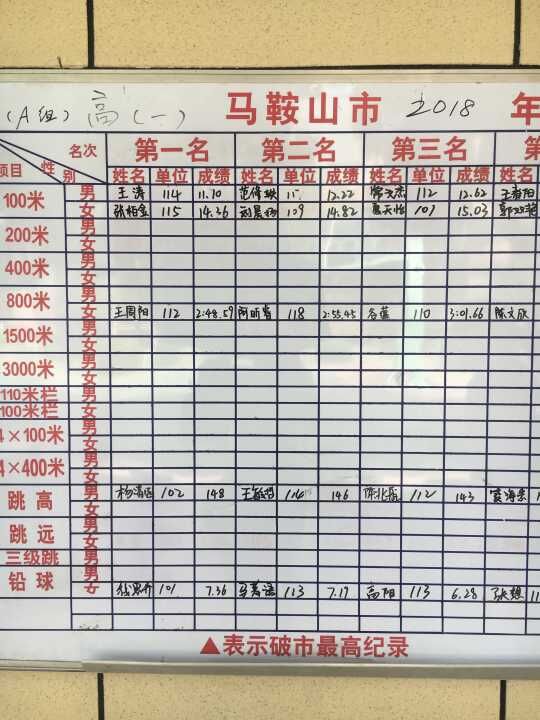 (A组) 高(一) 马鞍山市 2018 年
名次 第一名 第二名 第三名 第
项目 性别 姓名 单位 成绩 姓名 单位 成绩 姓名 单位 成绩 姓名
100米 男 王涛 114 11.70 12.22 112 12.62
女 张柏金 115 14.36 109 14.82 107 15.03
200米 男
女
400米 男
女
800米 男
女 王周阳 112 2:48.59 118 2:53.45 谷蕴 110 3:01.66 陈文欣
1500米 男
女
3000米 男
女
110米栏 男
100米栏 女
4×100米 男
女
4×400米 男
女
跳高 男 102 148 146 112 143
女
跳远 男
女
三级跳 男
铅球 男
女 101 7.36 113 7.17 高阳 113 6.28 张想
▲表示破市最高纪录